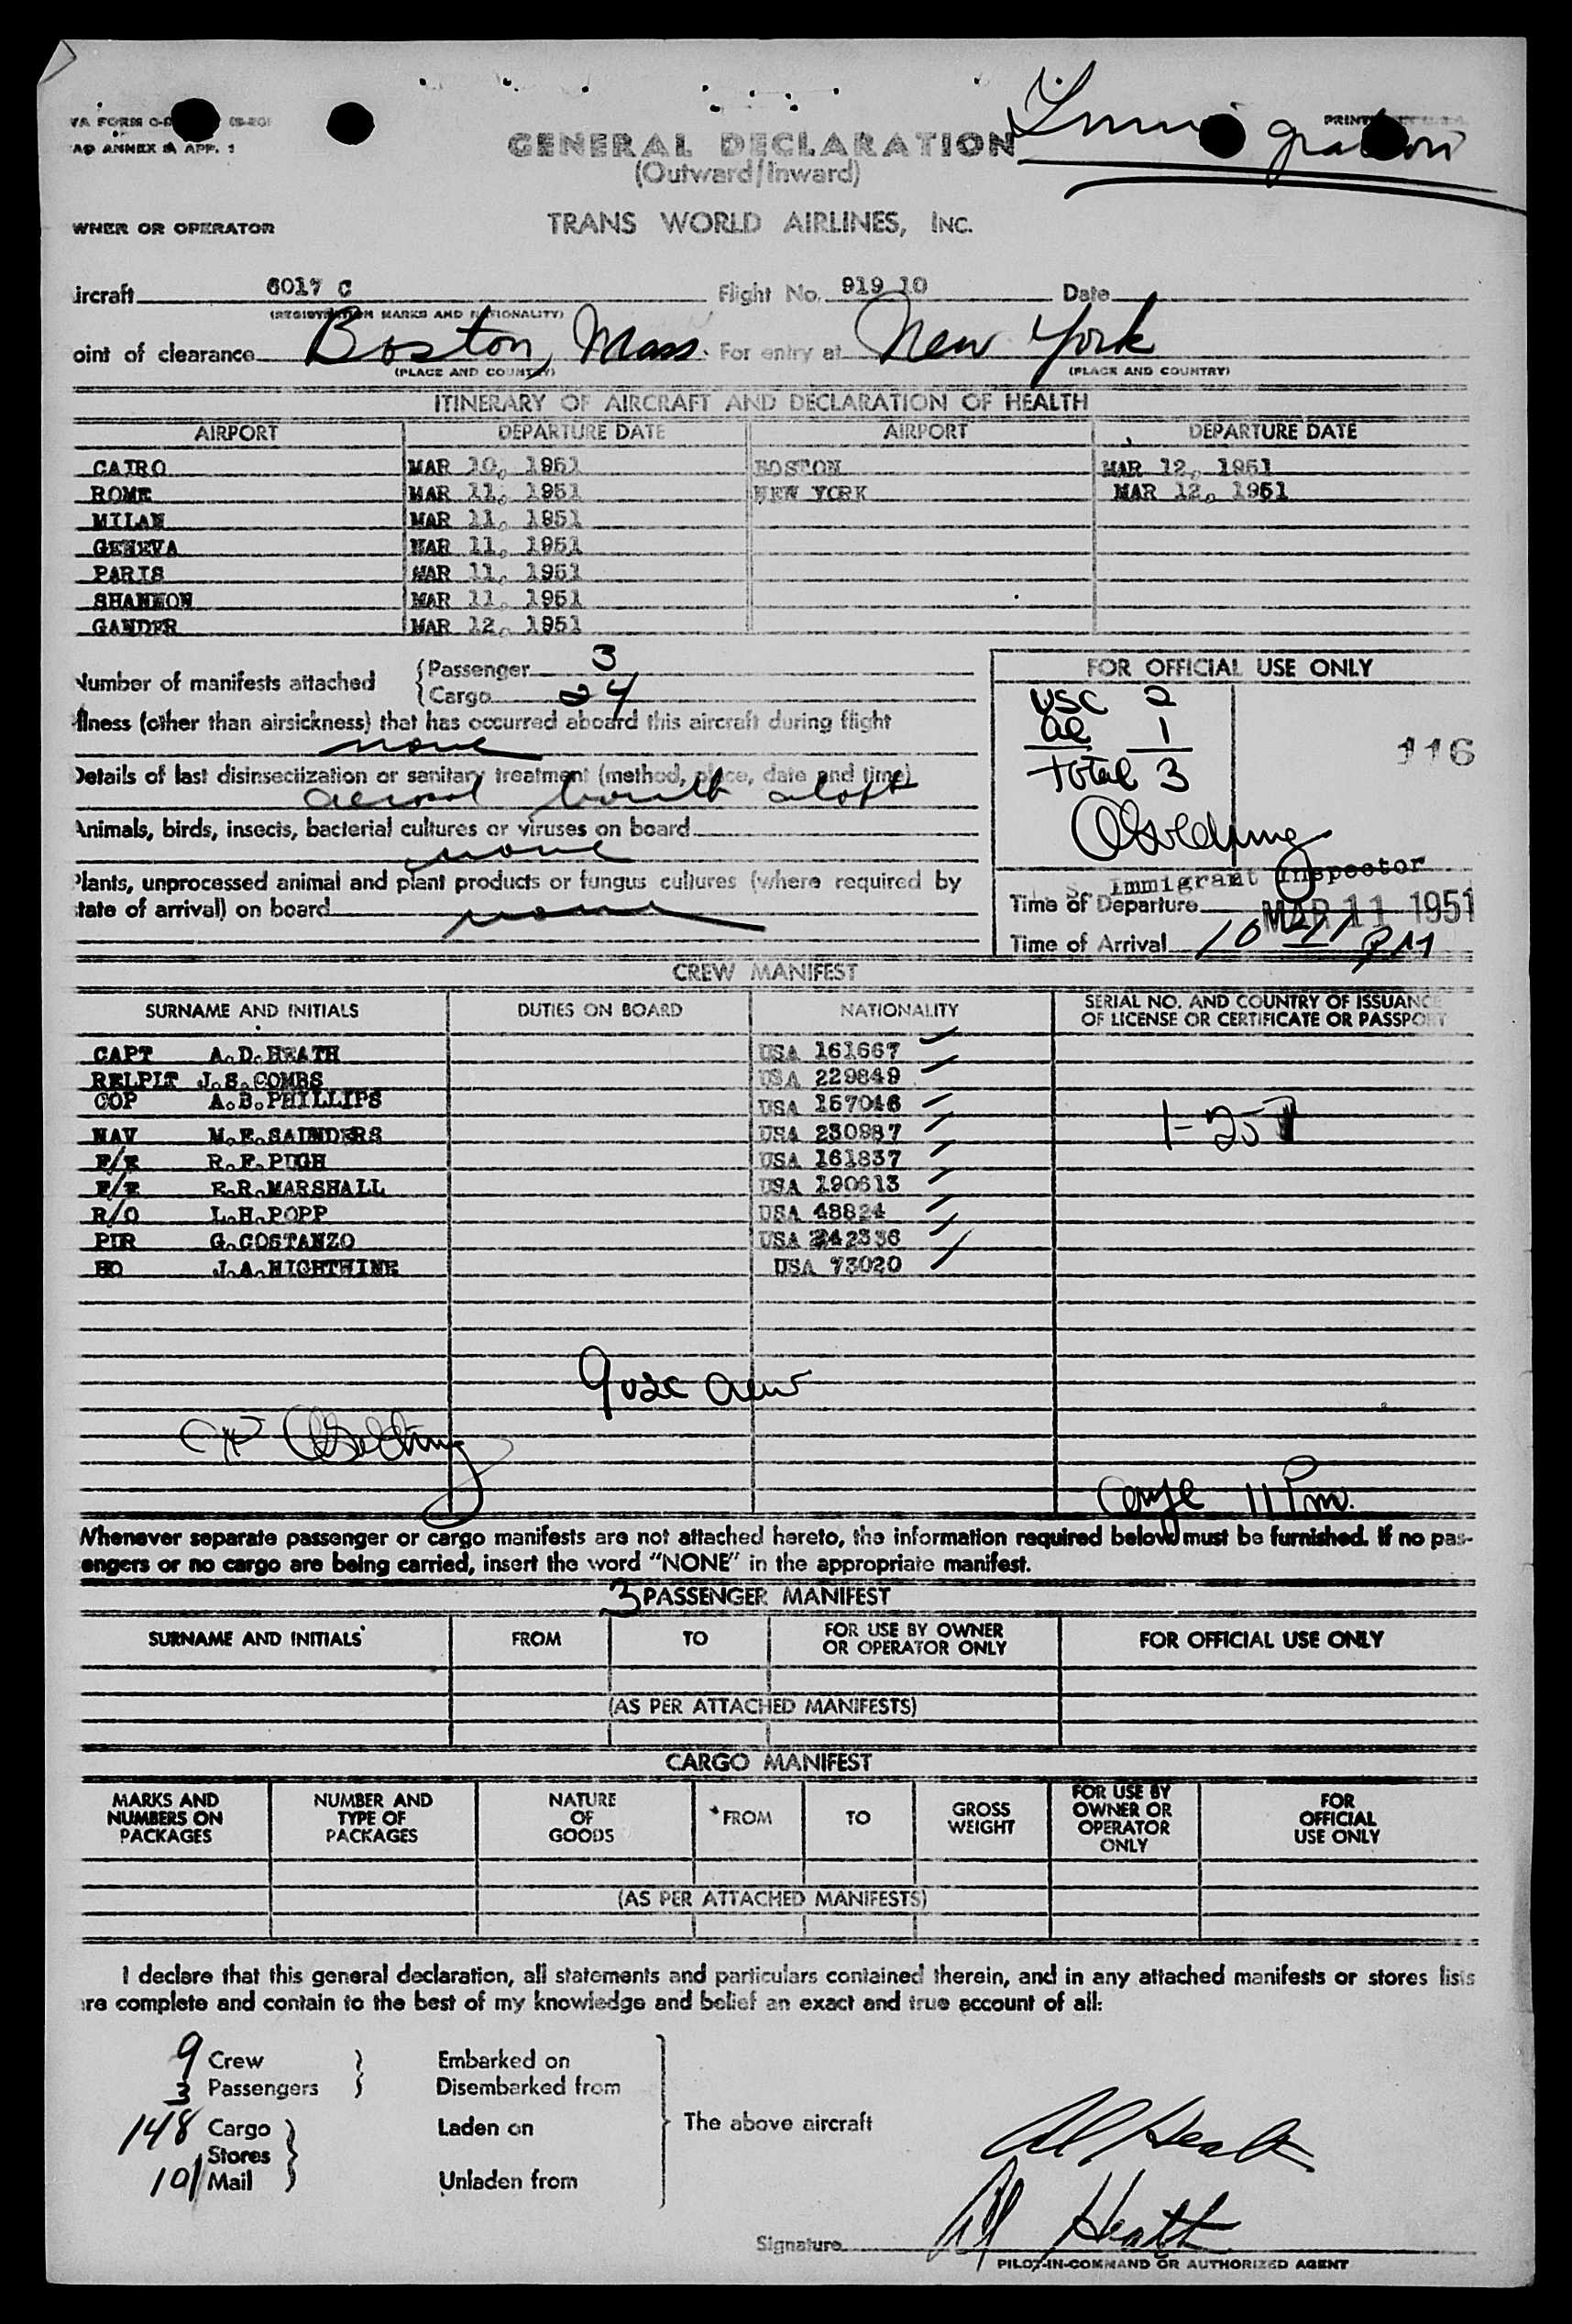 Immigration
GENERAL DECLARATION
(Outward/Inward)
AO ANNEX 9A APP. 1
WNER OR OPERATOR TRANS WORLD AIRLINES, INC.
ircraft 6017 C Flight No. 919 10 Date
(REGISTRATION MARKS AND NATIONALITY)
oint of clearance Boston, Mass. For entry at New York
(PLACE AND COUNTRY) (PLACE AND COUNTRY)
ITINERARY OF AIRCRAFT AND DECLARATION OF HEALTH
AIRPORT DEPARTURE DATE AIRPORT DEPARTURE DATE
CAIRO MAR 10, 1951 BOSTON MAR 12, 1951
ROME MAR 11, 1951 NEW YORK MAR 12, 1951
MILAN MAR 11, 1951
GENEVA MAR 11, 1951
PARIS MAR 11, 1951
SHANNON MAR 11, 1951
GANDER MAR 12, 1951
Number of manifests attached Passenger 3
Cargo 24
FOR OFFICIAL USE ONLY
USC 2
al 1
Total 3
116
llness (other than airsickness) that has occurred aboard this aircraft during flight
none
Details of last disinsectization or sanitary treatment (method, place, date and time)
aerosol aloft
Animals, birds, insects, bacterial cultures or viruses on board
none
Plants, unprocessed animal and plant products or fungus cultures (where required by
tate of arrival) on board none
S. Immigrant Inspector
Time of Departure MAR 11 1951
Time of Arrival 10 PM
CREW MANIFEST
SURNAME AND INITIALS DUTIES ON BOARD NATIONALITY SERIAL NO. AND COUNTRY OF ISSUANCE
OF LICENSE OR CERTIFICATE OR PASSPORT
CAPT A.D.HEATH USA 161667
RELPIT J.S.COMBS USA 229849
COP A.B.PHILLIPS USA 157046
NAV M.E.SAUNDERS USA 230987
F/E R.F.PUGH USA 161837
F/E E.R.MARSHALL USA 190613
R/O L.H.POPP USA 48824
PUR G.COSTANZO USA 242336
HO J.A.NIGHTHINE USA 73020
1-25
9 usc crew
11 Pm.
Whenever separate passenger or cargo manifests are not attached hereto, the information required below must be furnished. If no pas-
engers or no cargo are being carried, insert the word "NONE" in the appropriate manifest.
3 PASSENGER MANIFEST
SURNAME AND INITIALS FROM TO FOR USE BY OWNER
OR OPERATOR ONLY FOR OFFICIAL USE ONLY
(AS PER ATTACHED MANIFESTS)
CARGO MANIFEST
MARKS AND
NUMBERS ON
PACKAGES
NUMBER AND
TYPE OF
PACKAGES
NATURE
OF
GOODS
FROM
TO
GROSS
WEIGHT
FOR USE BY
OWNER OR
OPERATOR
ONLY
FOR
OFFICIAL
USE ONLY
(AS PER ATTACHED MANIFESTS)
I declare that this general declaration, all statements and particulars contained therein, and in any attached manifests or stores lists
re complete and contain to the best of my knowledge and belief an exact and true account of all:
9 Crew Embarked on
3 Passengers Disembarked from
148 Cargo Laden on The above aircraft
Stores
101 Mail Unladen from
Al Heath
Signature Al Heath
PILOT-IN-COMMAND OR AUTHORIZED AGENT